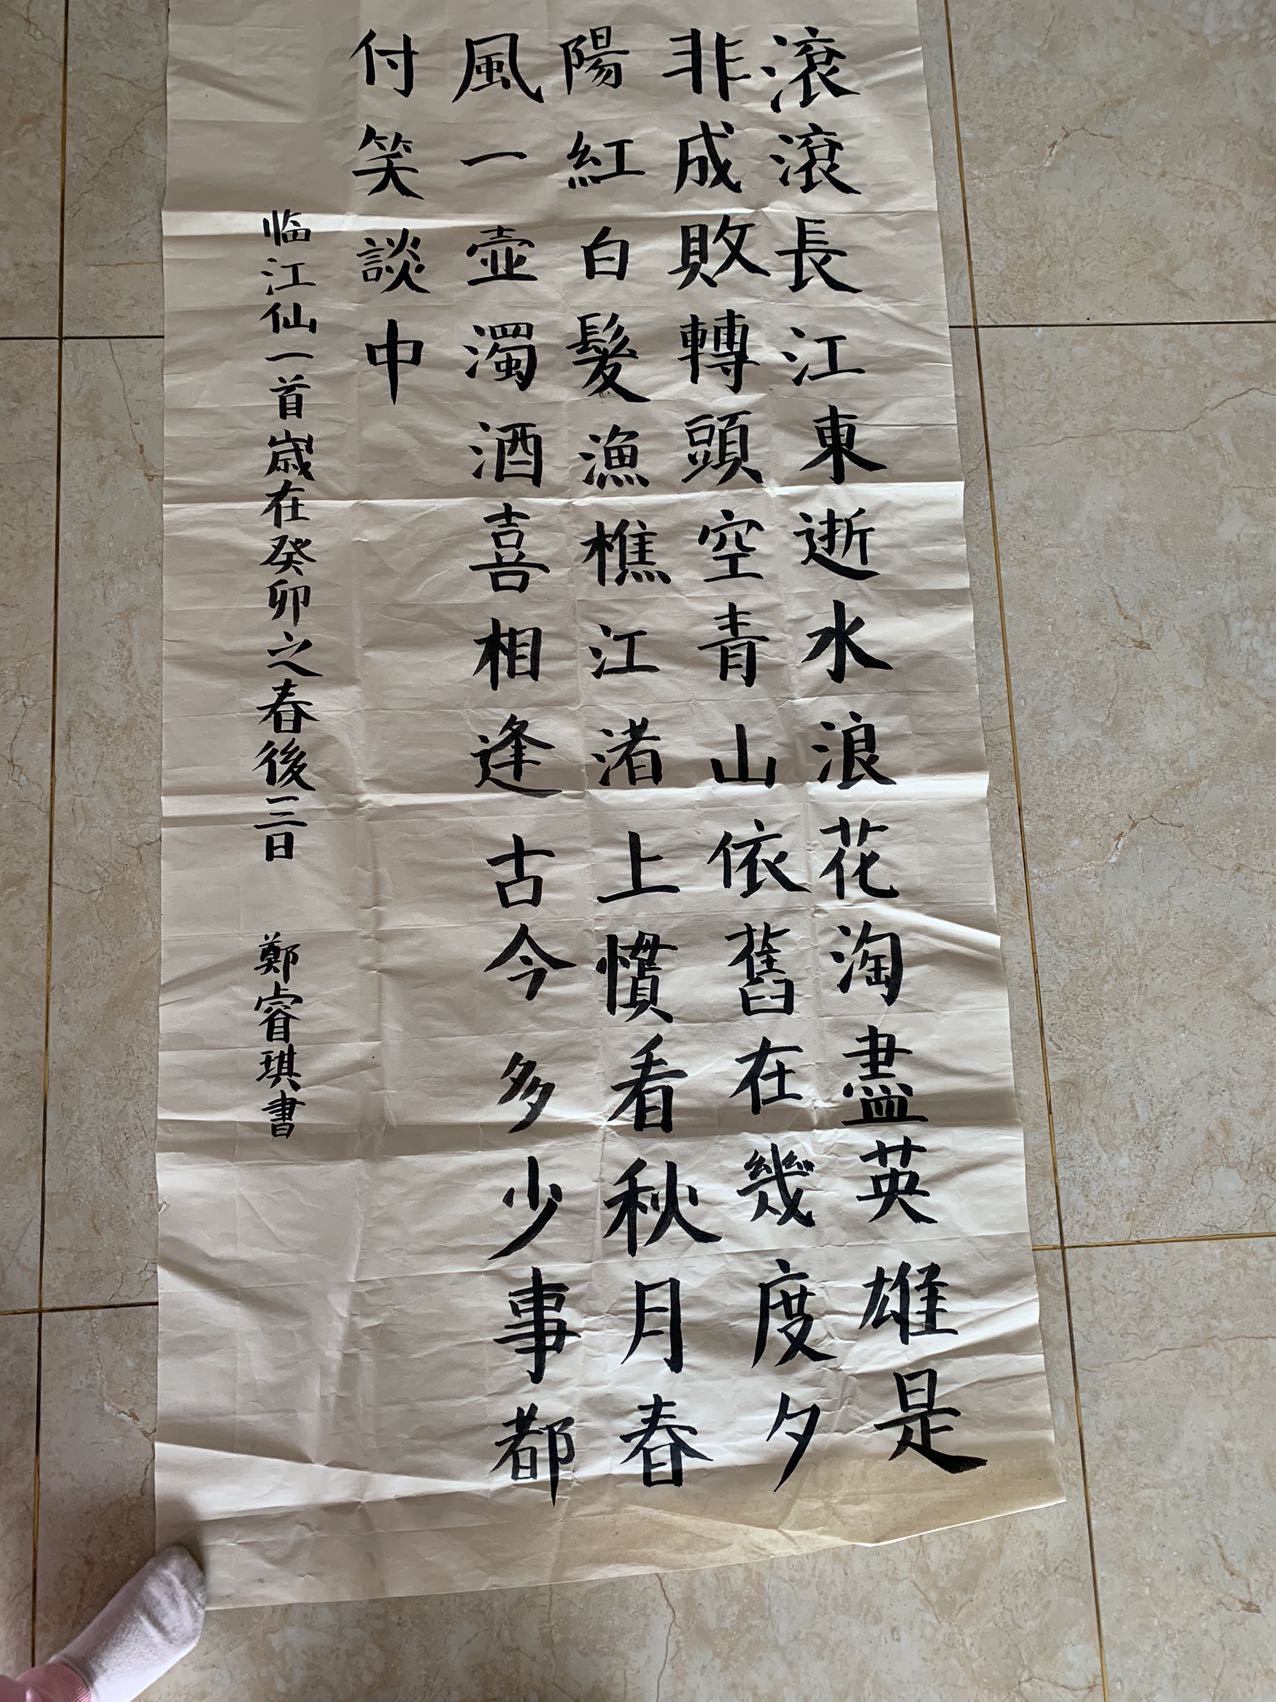 滾滾長江東逝水浪花淘盡英雄是
非成敗轉頭空青山依舊在幾度夕
陽紅白髮漁樵江渚上慣看秋月春
風一壺濁酒喜相逢古今多少事都
付笑談中
临江仙一首歲在癸卯之春後三日 鄭睿琪書